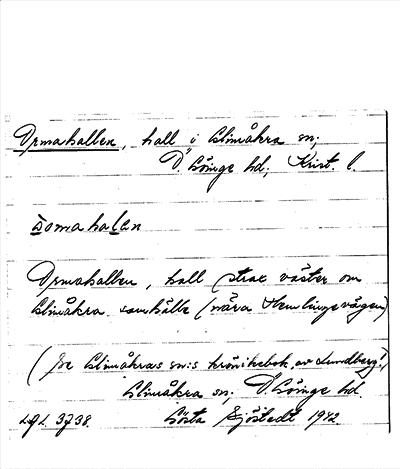 Ormahallen, hall i Glimåkra sn;
Ö. Göinge hd; Krist. l.
Ormahallen, hall strax väster om
Glimåkra samhälle (nära Hemlingevägen)
(se Glimåkras sn:s krönikebok, av Lundberg!)
Glimåkra sn; Ö. Göinge hd.
Gösta Sjöstedt 1942.